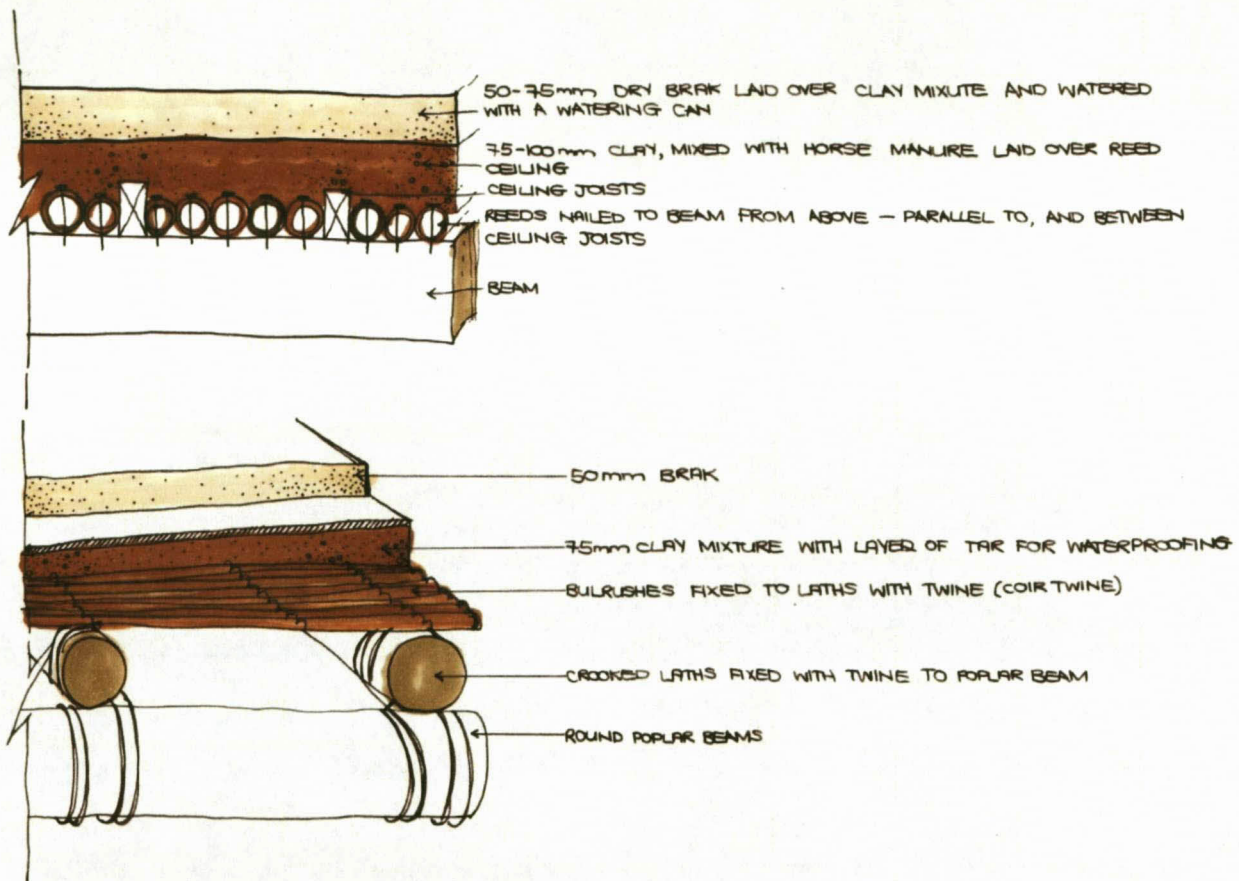 50-75mm DRY BRAK LAID OVER CLAY MIXUTE AND WATERED
WITH A WATERING CAN
75-100mm CLAY, MIXED WITH HORSE MANURE LAID OVER REED
CEILING
CEILING JOISTS
REEDS NAILED TO BEAM FROM ABOVE - PARALLEL TO, AND BETWEEN
CEILING JOISTS
BEAM
50mm BRAK
75mm CLAY MIXTURE WITH LAYER OF TAR FOR WATERPROOFING
BULRUSHES FIXED TO LATHS WITH TWINE (COIR TWINE)
CROOKED LATHS FIXED WITH TWINE TO POPLAR BEAM
ROUND POPLAR BEAMS